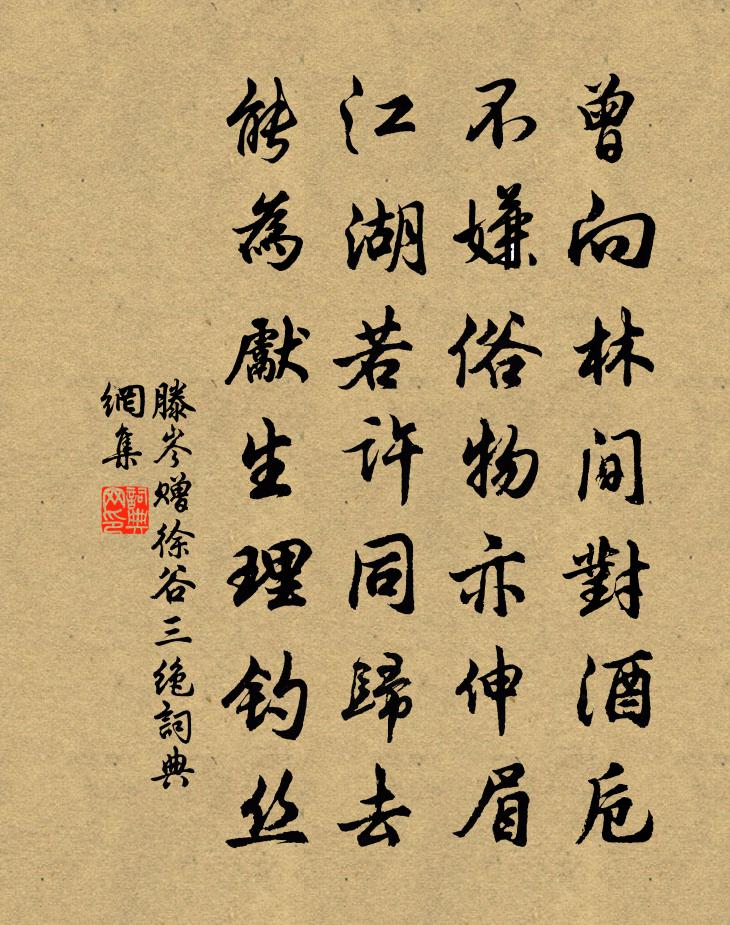 曾向林間對酒卮
不嫌俗物亦伸眉
江湖若許同歸去
能為獻生理釣丝
滕岑赠徐谷三绝詞典
網集
詞典
网印